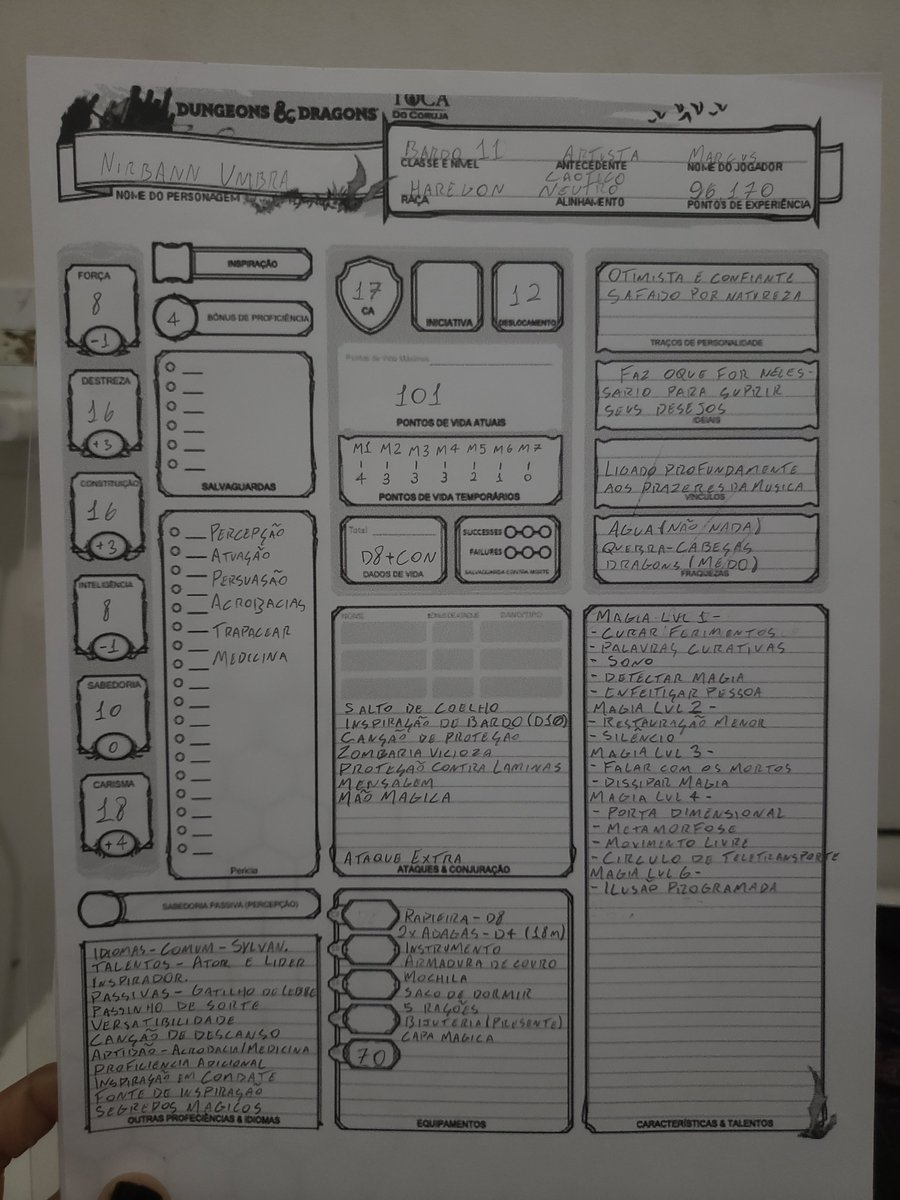 DUNGEONS & DRAGONS
TOCA
DO CORUJA
NIRBANN UMBRA
NOME DO PERSONAGEM
BARDO 11
CLASSE E NÍVEL
ARTISTA
ANTECEDENTE
MARCUS
NOME DO JOGADOR
HAREGON
RAÇA
CAOTICO
NEUTRO
ALINHAMENTO
96.170
PONTOS DE EXPERIÊNCIA
FORÇA
8
-1
DESTREZA
16
+3
CONSTRUIÇÃO
16
+3
INTELIGÊNCIA
8
-1
SABEDORIA
10
0
CARISMA
18
+4
INSPIRAÇÃO
4
BÔNUS DE PROFICIÊNCIA
SALVAGUARDAS
PERCEPÇÃO
ATUAÇÃO
PERSUASÃO
ACROBACIAS
TRAPACEAR
MEDICINA
Perícia
SABEDORIA PASSIVA (PERCEPÇÃO)
IDIOMAS - COMUM - SYLVAN.
TALENTOS - ATOR E LIDER
INSPIRADOR.
PASSIVAS - GATILHO DE LEBRE
PASSINHO DE SORTE
VERSATIBILIDADE
CANÇÃO DE DESCANSO
APTIDÃO - ACROBACIA/MEDICINA
PROFICIENCIA ADICIONAL
INSPIRAÇÃO EM COMBATE
FONTE DE INSPIRAÇÃO
SEGREDOS MAGICOS
OUTRAS PROFECIÊNCIAS & IDIOMAS
17
CA
INICIATIVA
12
DESLOCAMENTO
Pontos de Vida Máximos
101
PONTOS DE VIDA ATUAIS
M1 M2 M3 M4 M5 M6 M7
4 3 3 3 2 1 0
PONTOS DE VIDA TEMPORÁRIOS
Total
D8+CON
DADOS DE VIDA
SUCCESSES
FAILURES
SALVAGUARDA CONTRA MORTE
NOME
BÔNUS DE ATAQUE
DANO/TIPO
SALTO DE COELHO
INSPIRAÇÃO DE BARDO (D10)
CANÇÃO DE PROTEÇÃO
ZOMBARIA VICIOZA
PROTEÇÃO CONTRA LAMINAS
MENSAGEM
MÃO MAGICA
ATAQUE EXTRA
ATAQUES & CONJURAÇÃO
RAPIEIRA - D8
2x ADAGAS - D4 (18m)
INSTRUMENTO
ARMADURA DE COURO
MOCHILA
SACO DE DORMIR
5 RAÇÕES
BIJUTERIA (PRESENTE)
CAPA MAGICA
70
EQUIPAMENTOS
OTIMISTA E CONFIANTE
SAFADO POR NATUREZA
TRAÇOS DE PERSONALIDADE
FAZ OQUE FOR NELES-
SARIO PARA SUPRIR
SEUS DESEJOS
IDEIAIS
LIGADO PROFUNDAMENTE
AOS PRAZERES DA MUSICA
VÍNCULOS
AGUA (NÃO NADA)
QUEBRA-CABEÇAS
DRAGONS (MEDO)
FRAQUEZAS
MAGIA LVL 1 -
- CURAR FERIMENTOS
- PALAVRAS CURATIVAS
- SONO
- DETECTAR MAGIA
- ENFEITIÇAR PESSOA
MAGIA LVL 2 -
- RESTAURAÇÃO MENOR
- SILÊNCIO
MAGIA LVL 3 -
- FALAR COM OS MORTOS
- DISSIPAR MAGIA
MAGIA LVL 4 -
- PORTA DIMENSIONAL
- METAMORFOSE
- MOVIMENTO LIVRE
- CIRCULO DE TELETRANSPORTE
MAGIA LVL 6 -
- ILUSÃO PROGRAMADA
CARACTERÍSTICAS & TALENTOS